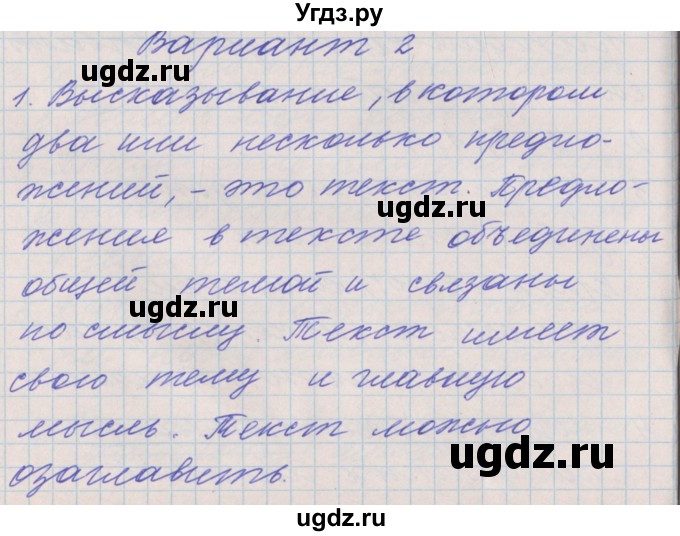 Угдз.ру
Вариант 2
ugdz.ru
1. Высказывание, в котором
два или несколько предло-
жений, - это текст. Предло-
ugdz.ru
жения в тексте объединены
общей темой и связаны
ugdz.ru
по смыслу. Текст имеет
свою тему и главную
мысль. Текст можно
ugdz.ru
озаглавить.
ugdz.ru